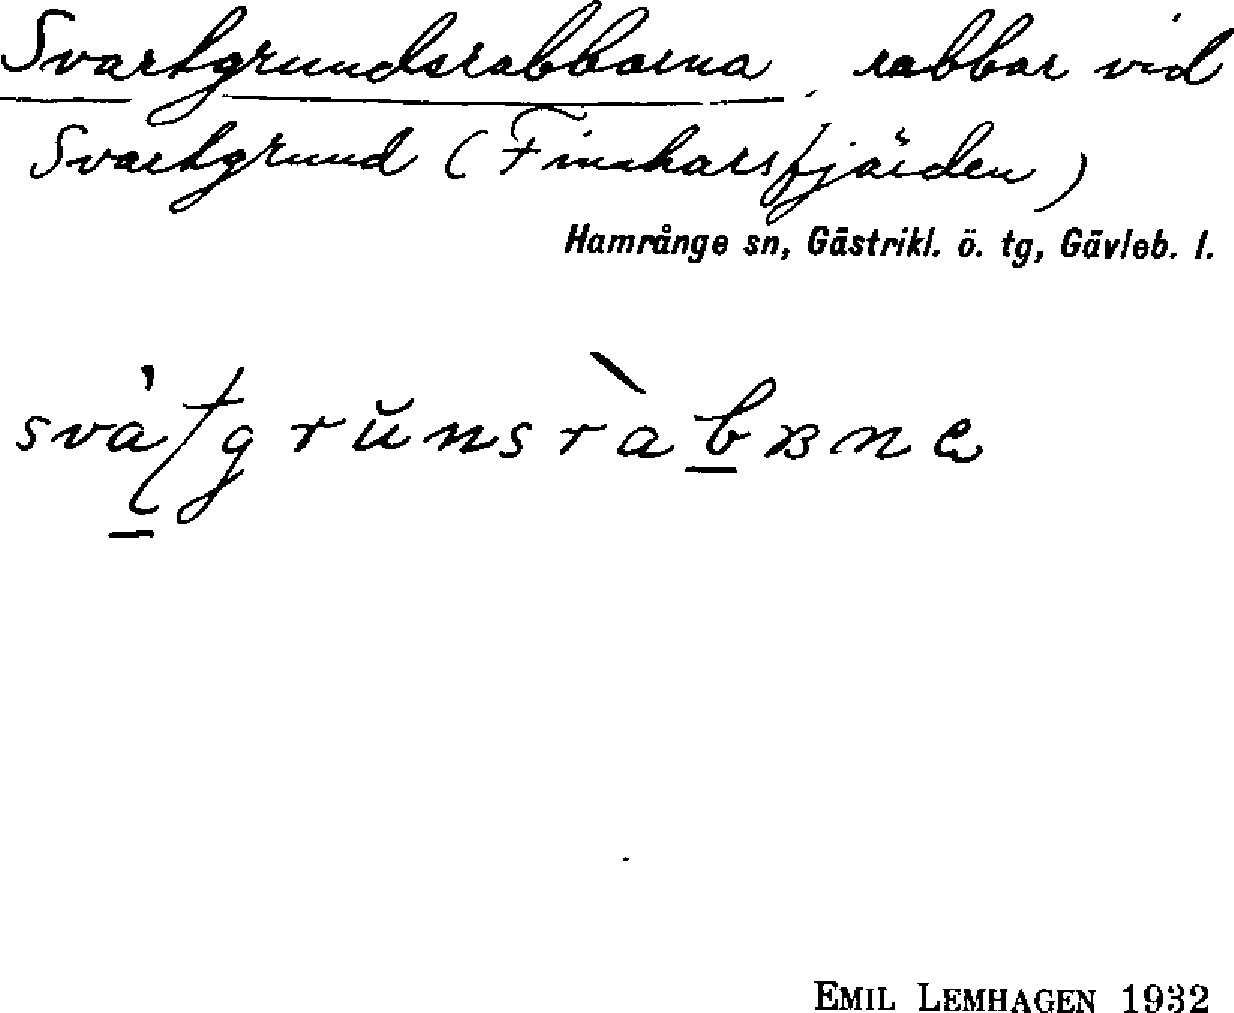 Svartgrundsrabbarna, rabbar vid
Svartgrund (Finnharsfjärden)
Hamrånge sn, Gästrikl. ö. tg, Gävleb. l.
EMIL LEMHAGEN 1932